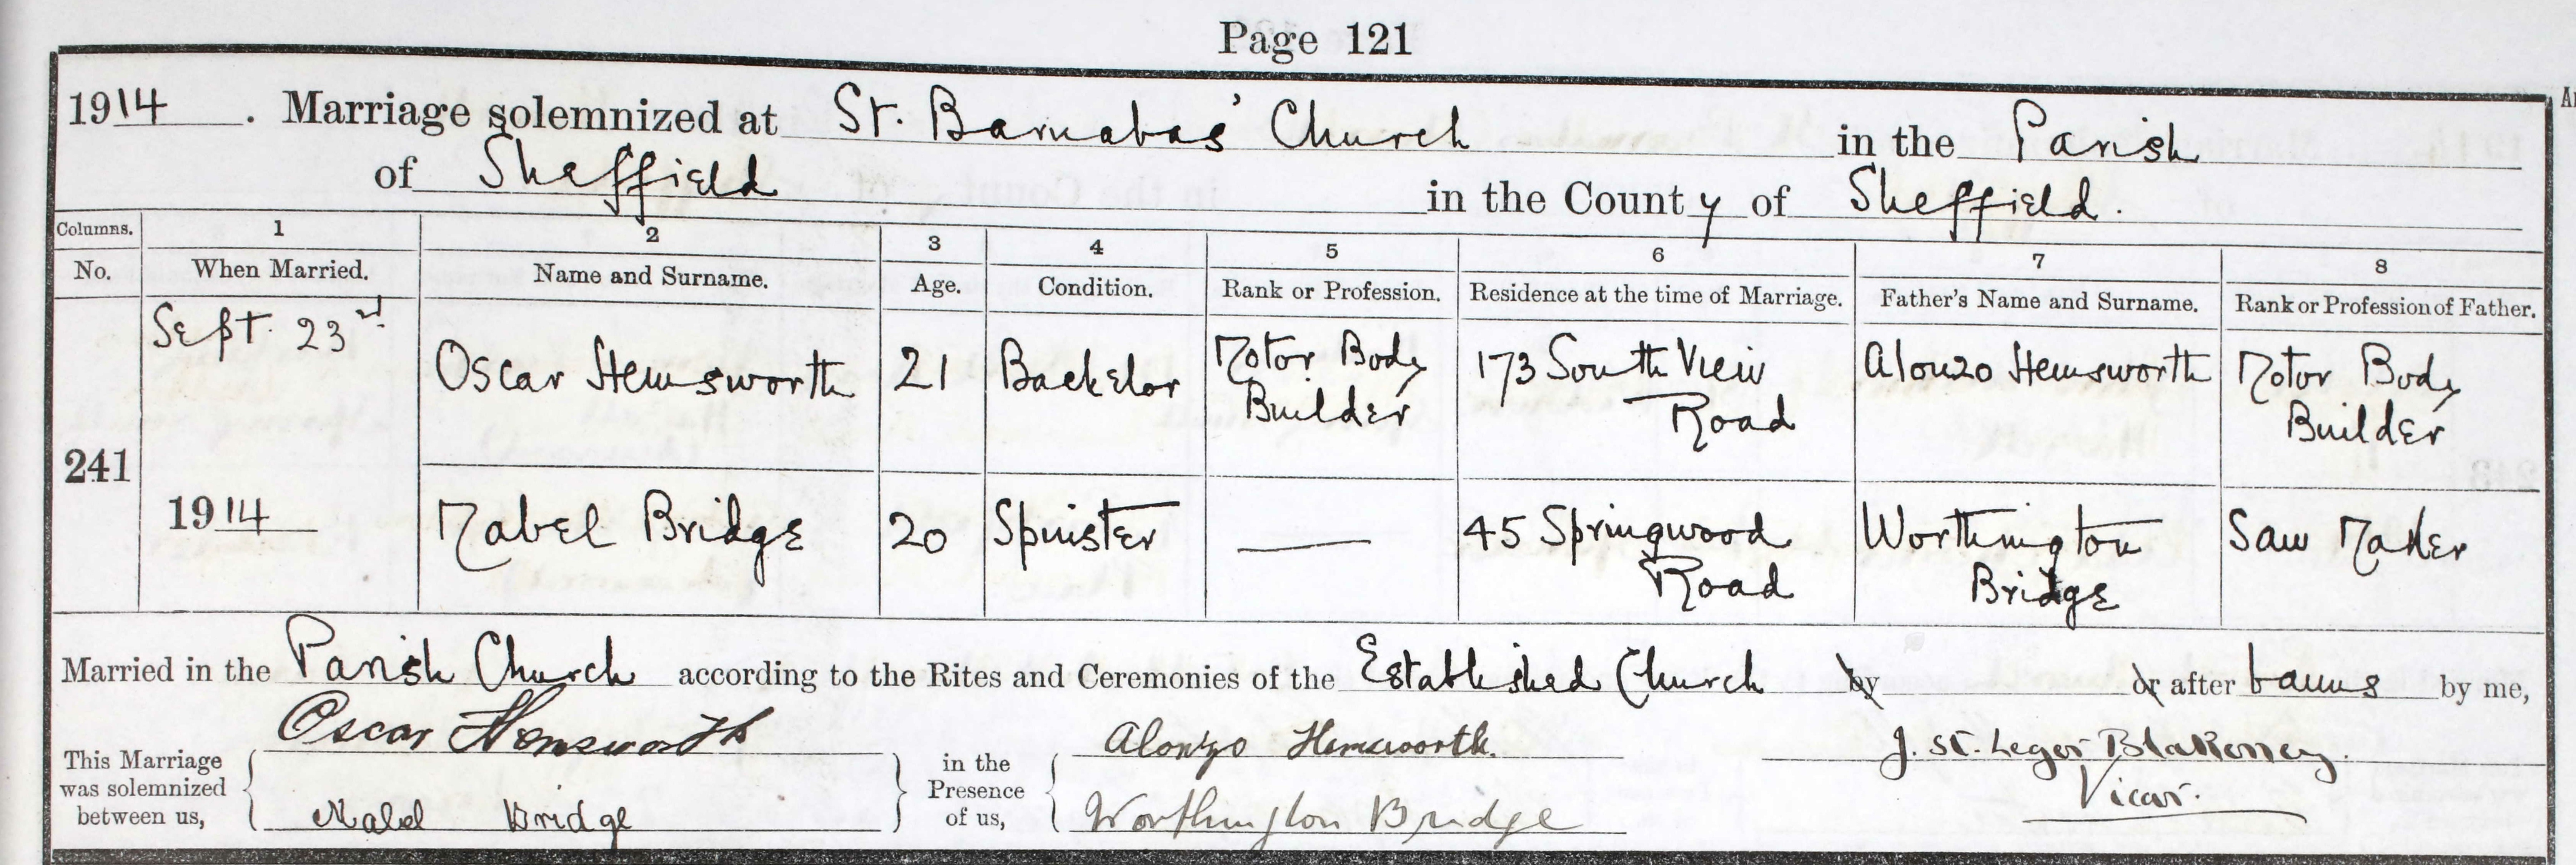 Page 121
1914. Marriage solemnized at St. Barnabas' Church in the Parish
of Sheffield in the County of Sheffield.
Columns. 1 2 3 4 5 6 7 8
No. When Married. Name and Surname. Age. Condition. Rank or Profession. Residence at the time of Marriage. Father's Name and Surname. Rank or Profession of Father.
Sept. 23rd Oscar Hemsworth 21 Bachelor Motor Body Builder 173 South View Road Alonzo Hemsworth Motor Body Builder
241
1914 Mabel Bridge 20 Spinster — 45 Springwood Road Worthington Bridge Saw Maker
Married in the Parish Church according to the Rites and Ceremonies of the Established Church by or after banns by me,
This Marriage was solemnized between us, Oscar Hemsworth Mabel Bridge in the Presence of us, Alonzo Hemsworth Worthington Bridge J. St. Leger Blakeney. Vicar.